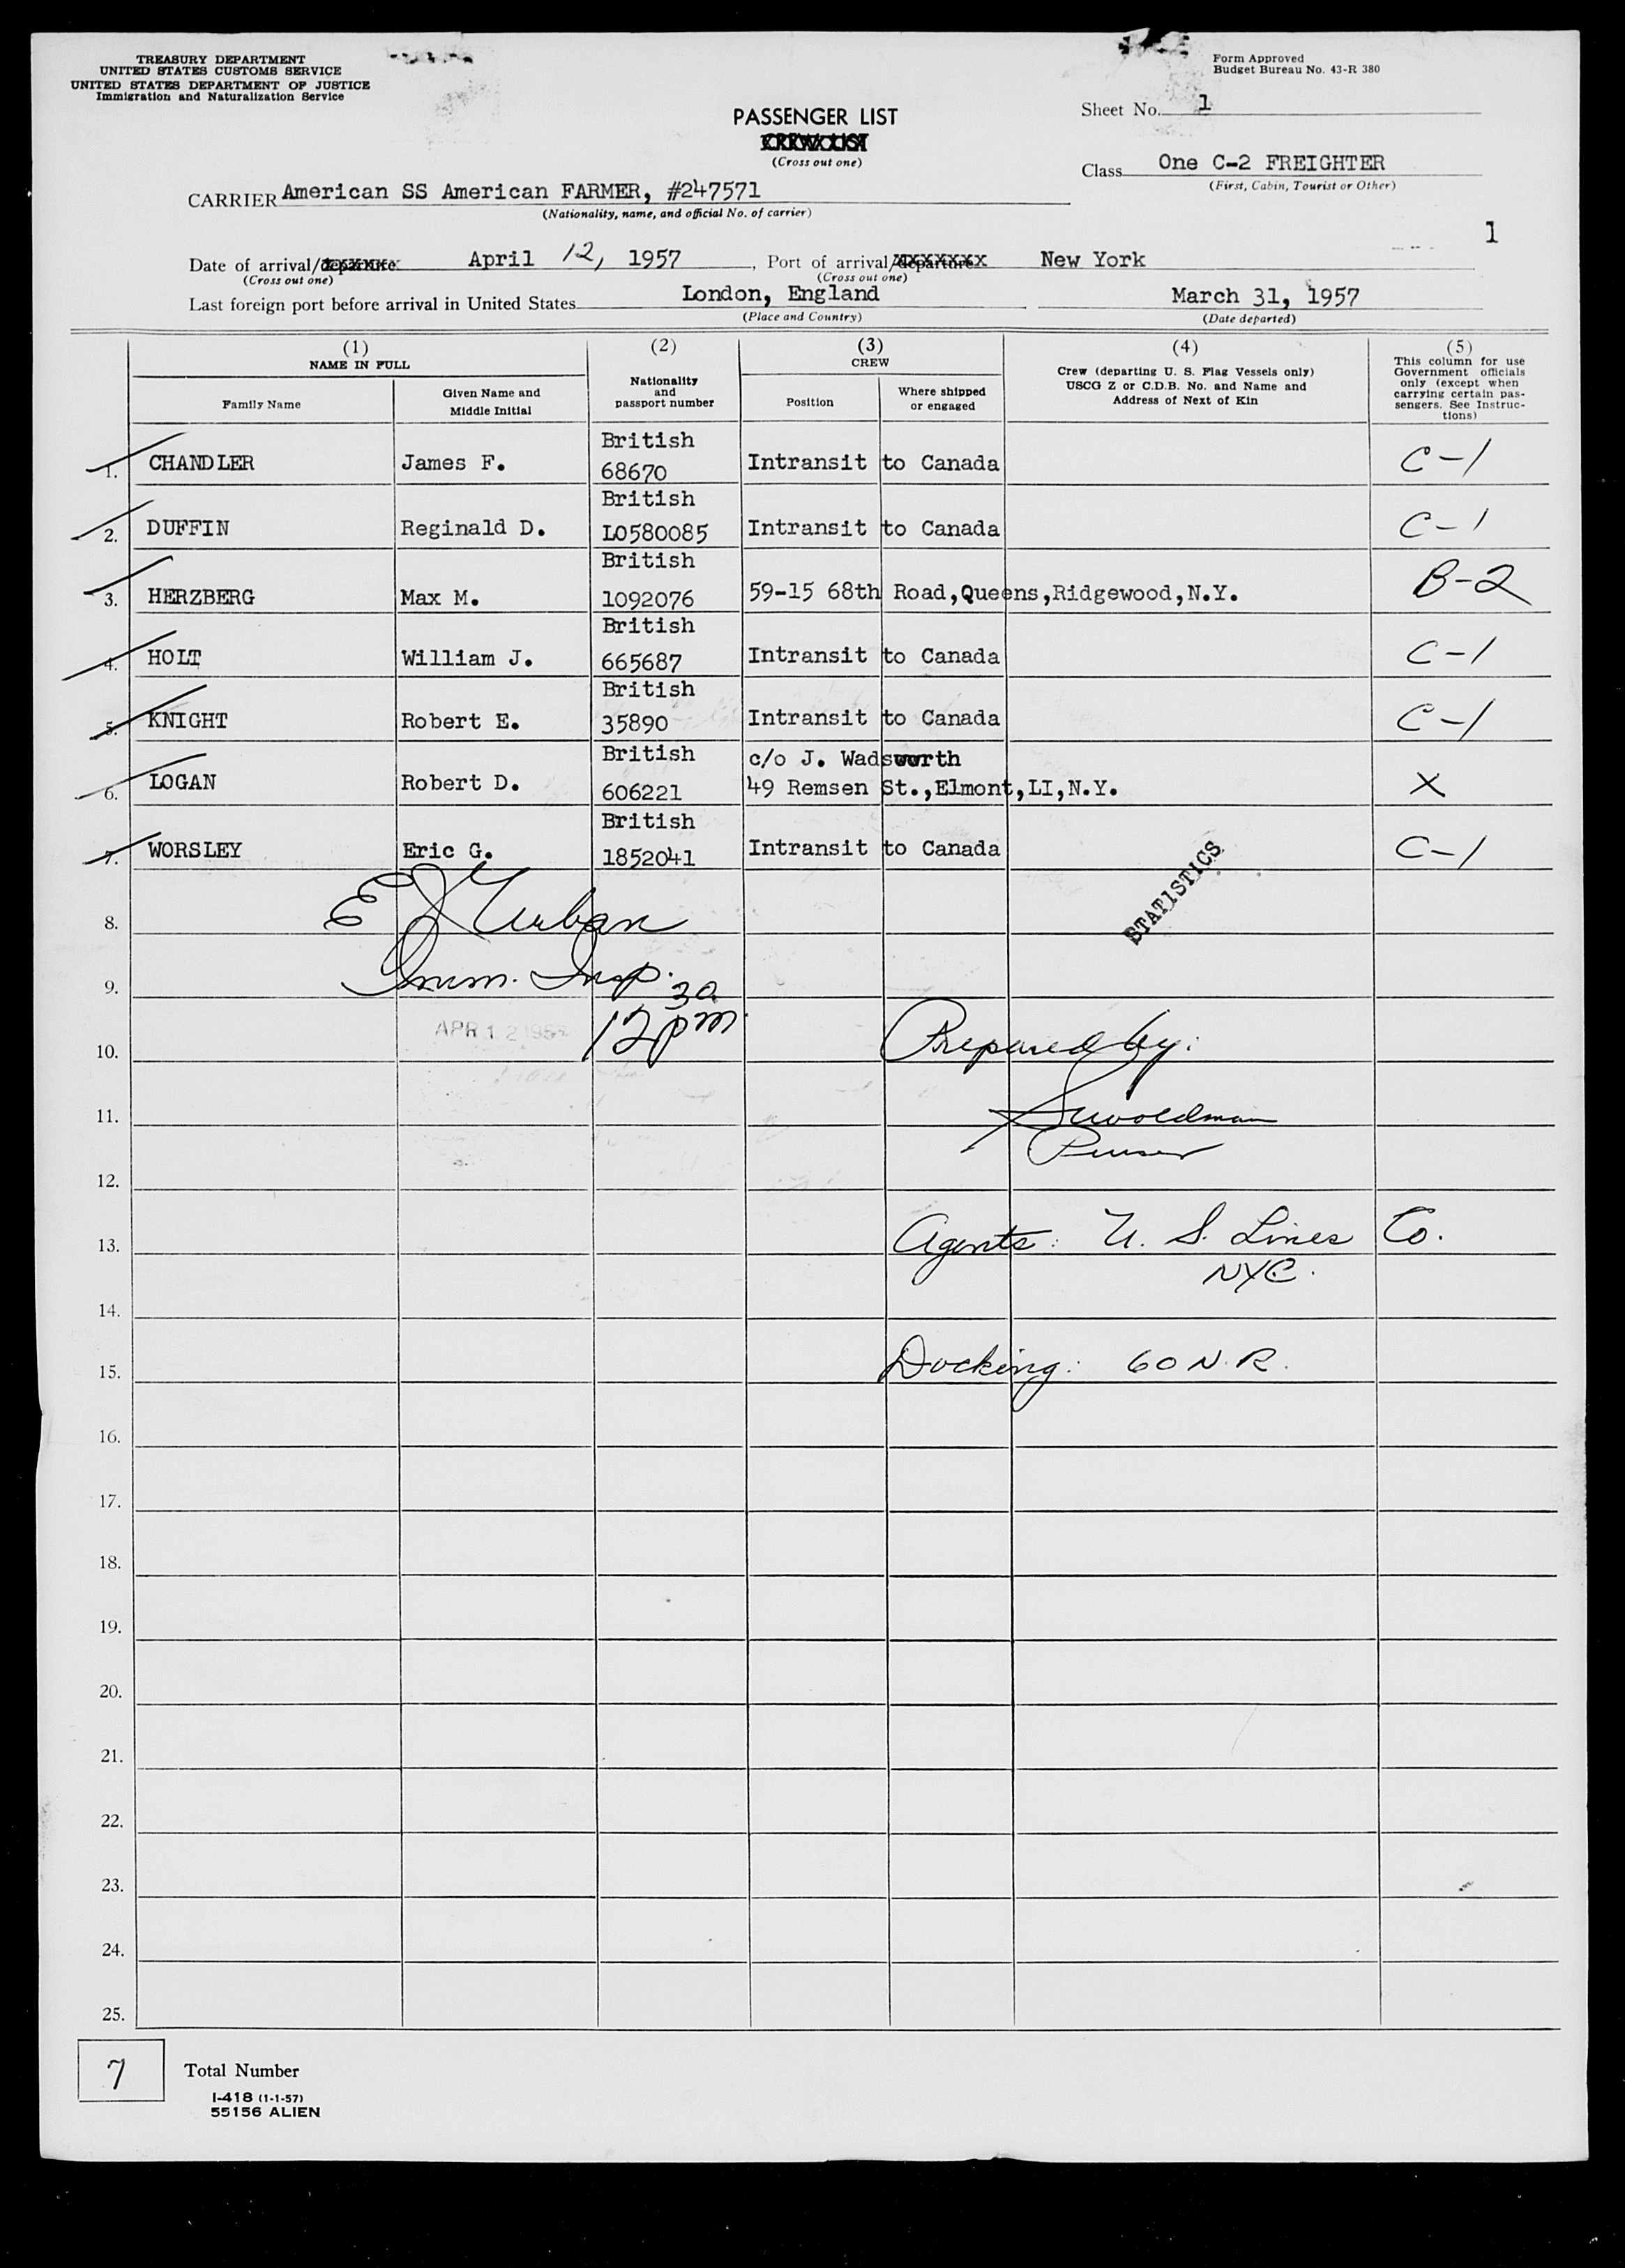 TREASURY DEPARTMENT
UNITED STATES CUSTOMS SERVICE
UNITED STATES DEPARTMENT OF JUSTICE
Immigration and Naturalization Service
Form Approved
Budget Bureau No. 43-R 380
Sheet No. 1
PASSENGER LIST
CREW LIST
(Cross out one)
Class One C-2 FREIGHTER
(First, Cabin, Tourist or Other)
CARRIER American SS American FARMER, #247571
(Nationality, name, and official No. of carrier)
1
Date of arrival/departure April 12, 1957, Port of arrival/departure New York
(Cross out one) (Cross out one)
Last foreign port before arrival in United States London, England March 31, 1957
(Place and Country) (Date departed)
(1) (2) (3) (4) (5)
NAME IN FULL
Family Name
Given Name and
Middle Initial
Nationality
and
passport number
CREW
Position
Where shipped
or engaged
Crew (departing U. S. Flag Vessels only)
USCG Z or C.D.B. No. and Name and
Address of Next of Kin
This column for use
Government officials
only (except when
carrying certain pas-
sengers. See Instruc-
tions)
British
1. CHANDLER James F. 68670 Intransit to Canada C-1
British
2. DUFFIN Reginald D. L0580085 Intransit to Canada C-1
British
3. HERZBERG Max M. 1092076 59-15 68th Road,Queens,Ridgewood,N.Y. B-2
British
4. HOLT William J. 665687 Intransit to Canada C-1
British
5. KNIGHT Robert E. 35890 Intransit to Canada C-1
British c/o J. Wadsworth
6. LOGAN Robert D. 606221 49 Remsen St.,Elmont,LI,N.Y. X
British
7. WORSLEY Eric G. 1852041 Intransit to Canada C-1
STATISTICS
8.
Imm. Insp.
9.
30
12 pm
APR 12 1957
10. Prepared by:
11.
Purser
12.
13. Agents: U. S. Lines Co.
NYC.
14.
15. Docking: 60 N. R.
16.
17.
18.
19.
20.
21.
22.
23.
24.
25.
7 Total Number
I-418 (1-1-57)
55156 ALIEN